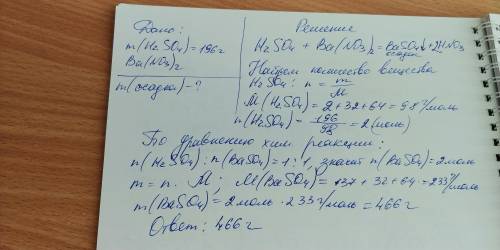 Дано:
m(H2SO4)=196г
Ba(NO3)2
m(осадка)-?
Решение
H2SO4 + Ba(NO3)2=BaSO4↓+2HNO3
осадок
Найдем количество вещества
H2SO4: n = m/M
M(H2SO4)=2+32+64=98г/моль
n(H2SO4)= 196/98 = 2(моль)
По уравнению хим. реакции:
n(H2SO4):n(BaSO4)=1:1, значит n(BaSO4)=2моль
m=n.M; M(BaSO4)=137+32+64=233г/моль
m(BaSO4)=2моль·233г/моль=466г
Ответ: 466г